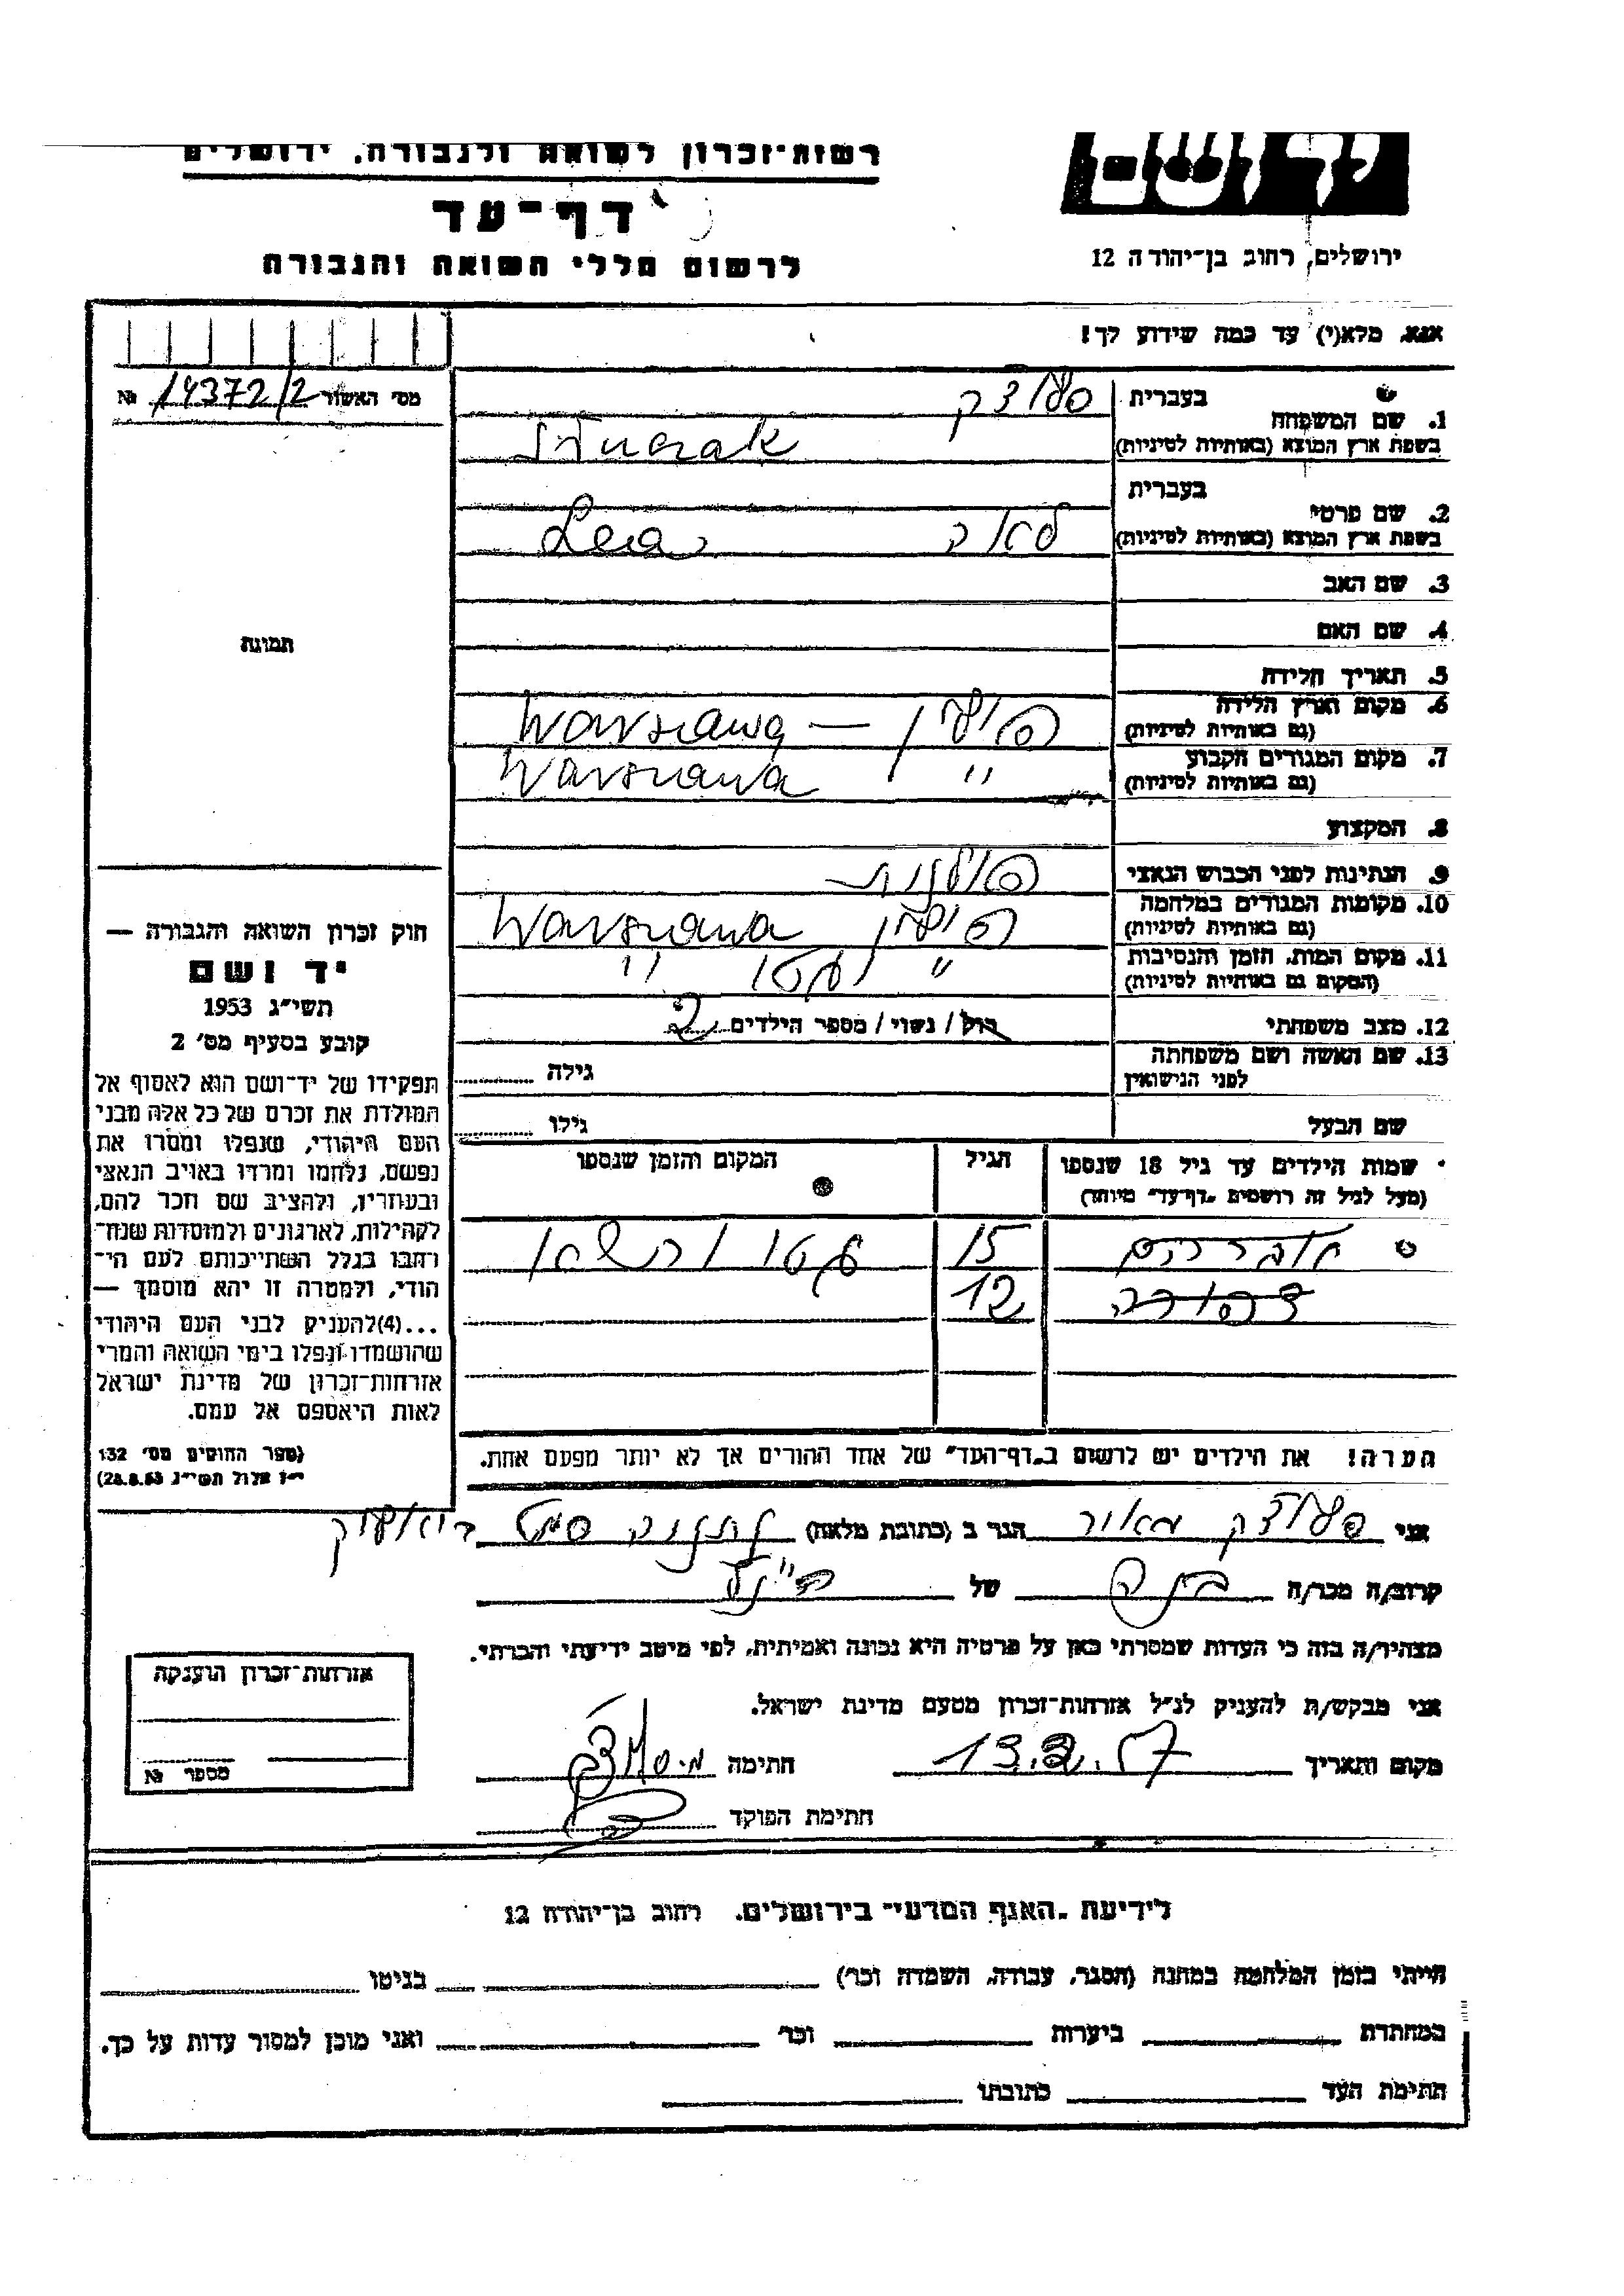 יד ושם
ירושלים, רחוב בן־יהודה 12
רשות־זכרון לשואה ולגבורה, ירושלים
דף־עד
לרשום חללי השואה והגבורה
אנא, מלא(י) עד כמה שידוע לך!
מס׳ האשור 14372/2 №
1. שם המשפחה
בעברית
בשפת ארץ המוצא (באותיות לטיניות)
2. שם פרטי
בעברית
בשפת ארץ המוצא (באותיות לטיניות)
לאה Lea
3. שם האב
4. שם האם
5. תאריך הלידה
6. מקום וארץ הלידה
(גם באותיות לטיניות)
פולין — Warszawa
7. מקום המגורים הקבוע
(גם באותיות לטיניות)
״ Warszawa
8. המקצוע
9. הנתינות לפני הכבוש הנאצי
פולנית
10. מקומות המגורים במלחמה
(גם באותיות לטיניות)
פולין Warszawa
11. מקום המות, הזמן והנסיבות
(המקום גם באותיות לטיניות)
״ גטו ״
12. מצב משפחתי
רוק / נשוי / מספר הילדים 2
13. שם האשה ושם משפחתה
לפני הנישואין
גילה
שם הבעל
גילו
שמות הילדים עד גיל 18 שנספו
(מעל לגיל זה רושמים „דף־עד״ מיוחד)
הגיל
המקום והזמן שנספו
אברהם 15 גטו ורשה
דבורה 12
הערה! את הילדים יש לרשום ב„דף־העד״ של אחד ההורים אך לא יותר מפעם אחת.
תמונה
חוק זכרון השואה והגבורה —
יד ושם
תשי״ג 1953
קובע בסעיף מס׳ 2
תפקידו של יד־ושם הוא לאסוף אל
המולדת את זכרם של כל אלה מבני
העם היהודי, שנפלו ומסרו את
נפשם, נלחמו ומרדו באויב הנאצי
ובעוזריו, ולהציב שם וזכר להם,
לקהילות, לארגונים ולמוסדות שנח־
רבו בגלל השתייכותם לעם הי־
הודי, ולמטרה זו יהא מוסמך —
...(4)להעניק לבני העם היהודי
שהושמדו ונפלו בימי השואה והמרי
אזרחות־זכרון של מדינת ישראל
לאות היאספם אל עמם.
(ספר החוקים מס׳ 132
י״ז אלול תשי״ג 28.8.53)
אני מאור הגר ב (כתובת מלאה)
קרוב/ה מכר/ה של הנ״ל
מצהיר/ה בזה כי העדות שמסרתי כאן על פרטיה היא נכונה ואמיתית, לפי מיטב ידיעתי והכרתי.
אני מבקש/ת להעניק לנ״ל אזרחות־זכרון מטעם מדינת ישראל.
מקום ותאריך 13.2.57 חתימה
חתימת הפוקד
אזרחות־זכרון הוענקה
מספר №
לידיעת „האגף המדעי״ בירושלים, רחוב בן־יהודה 12
הייתי בזמן המלחמה במחנה (הסגר, עבודה, השמדה וכו׳) בגיטו
במחתרת ביערות וכו׳ ואני מוכן למסור עדות על כך.
חתימת העד כתובתו